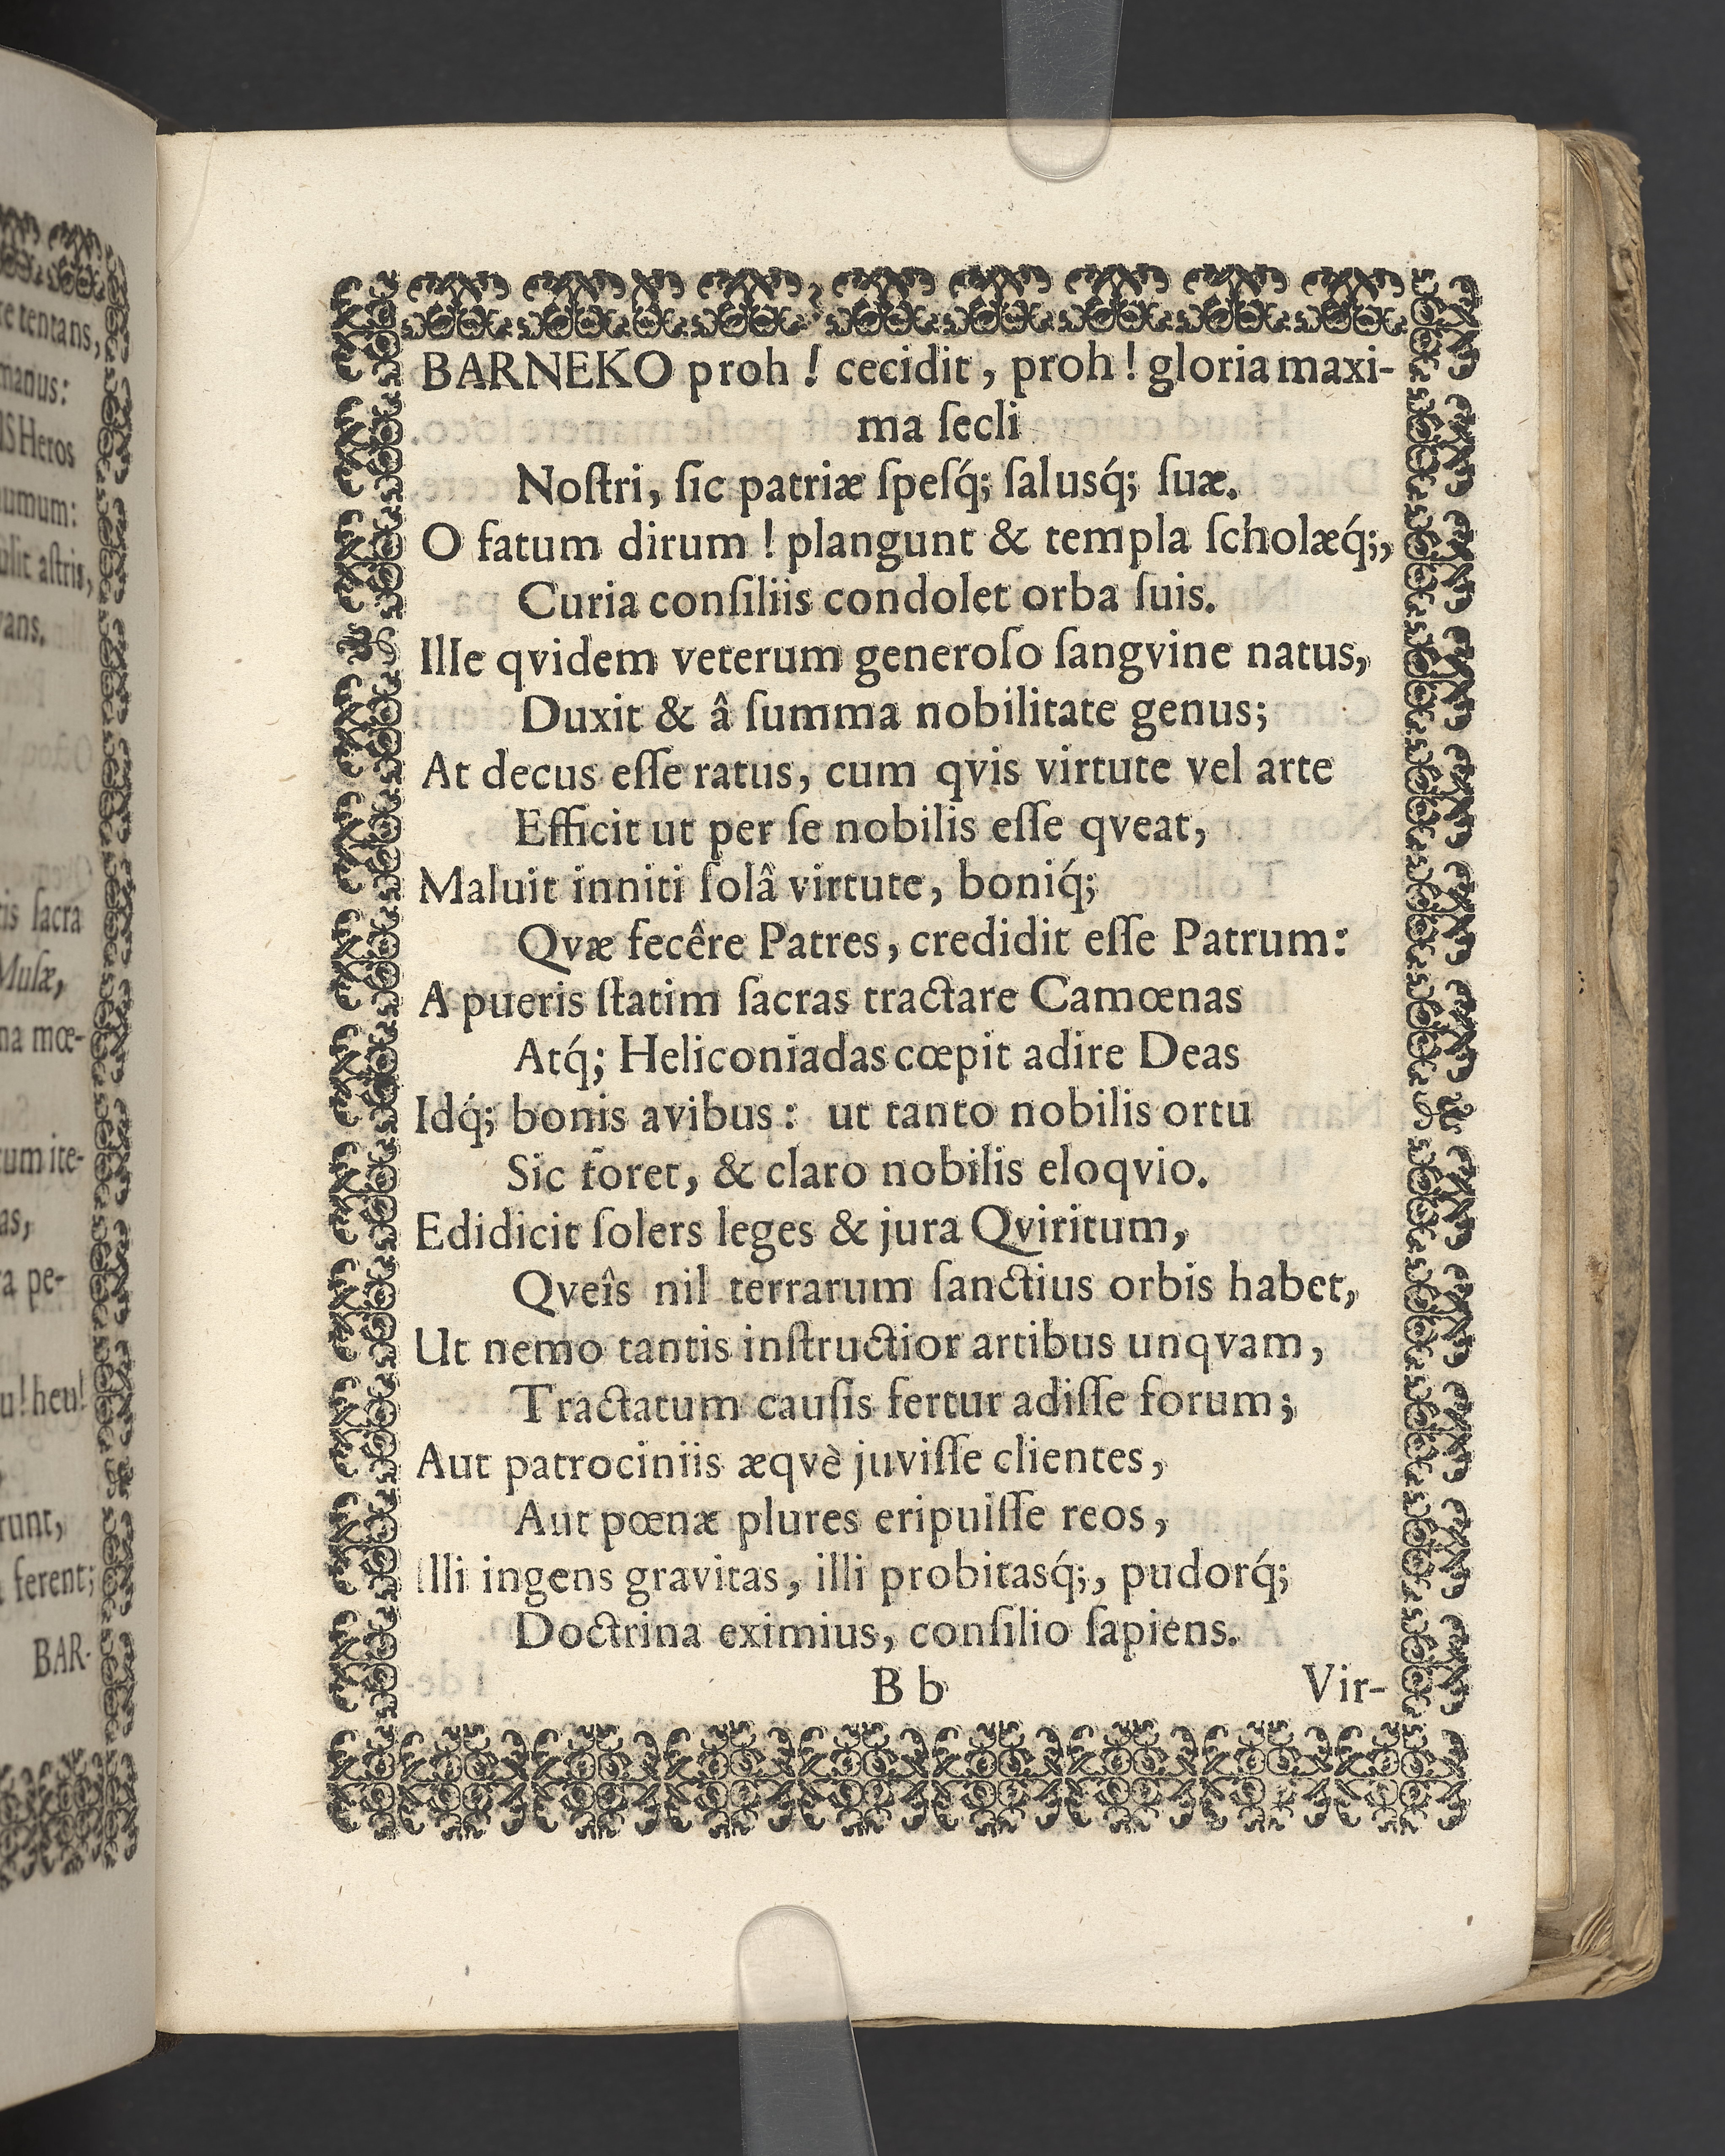 re tentans,
manus:
IS Heros
umum:
ulit astris,
vans.
tis sacra
Musæ,
na mœ-
tum ite-
as,
ra pe-
u! heu!
runt,
ferent;
BAR-
BARNEKO proh! cecidit, proh! gloria maxi-
ma ſecli
Noſtri, ſic patriæ ſpeſq́; ſalusq́; ſuæ.
O fatum dirum! plangunt & templa ſcholæq́;,
Curia conſiliis condolet orba ſuis.
Ille qvidem veterum generoſo ſangvine natus,
Duxit & â ſumma nobilitate genus;
At decus eſſe ratus, cum qvis virtute vel arte
Efficit ut per ſe nobilis eſſe qveat,
Maluit inniti ſolâ virtute, boniq́;
Qvæ fecêre Patres, credidit eſſe Patrum:
A pueris ſtatim ſacras tractare Camœnas
Atq́; Heliconiadas cœpit adire Deas
Idq́; bonis avibus: ut tanto nobilis ortu
Sic foret, & claro nobilis eloqvio.
Edidicit ſolers leges & jura Qviritum,
Qveîs nil terrarum ſanctius orbis habet,
Ut nemo tantis inſtructior artibus unqvam,
Tractatum cauſis fertur adiſſe forum;
Aut patrociniis æqvè juviſſe clientes,
Aut pœnæ plures eripuiſſe reos,
Illi ingens gravitas, illi probitasq́;, pudorq́;
Doctrina eximius, conſilio ſapiens.
B b Vir-